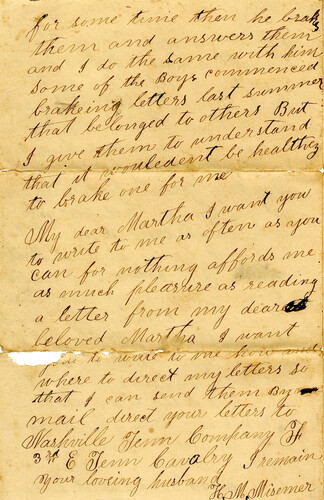 for some time then he brakes
them and answers them
and I do the same with him
some of the Boys commenced
brakeing letters last summer
that belonged to others But
I give them to understand
that it wouledent be healthy
to brake one for me
My dear Martha I want you
to write to me as often as you
can for nothing affords me
as much pleasure as reading
a letter from my dear
beloved Martha I want
you to write to me how and
where to direct my letters so
that I can send them By
mail direct your letters to
Nashville Tenn Company F
3rd E Tenn Cavalry I remain
your loveing husband
H. M. Misemer